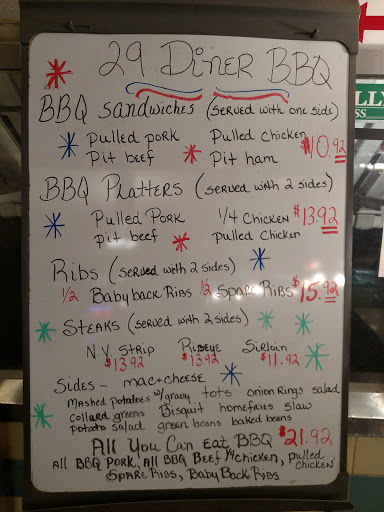 29 Diner BBQ
BBQ Sandwiches (served with one side)
Pulled pork Pulled Chicken $10.92
Pit beef Pit ham
BBQ Platters (served with 2 sides)
Pulled Pork 1/4 Chicken $13.92
pit beef pulled Chicken
Ribs (served with 2 sides)
1/2 Baby back Ribs 1/2 Spare Ribs $15.92
Steaks (served with 2 sides)
N.Y. Strip Ribeye Sirloin
$13.92 $13.92 $11.92
Sides - mac+cheese
Mashed potatoes w/gravy tots onion rings salad
Collard greens Bisquit homefries slaw
potato salad green beans baked beans
All You Can Eat BBQ $21.92
All BBQ Pork, All BBQ Beef, Chicken, pulled chicken,
Spare Ribs, Baby Back Ribs
LLY
SS